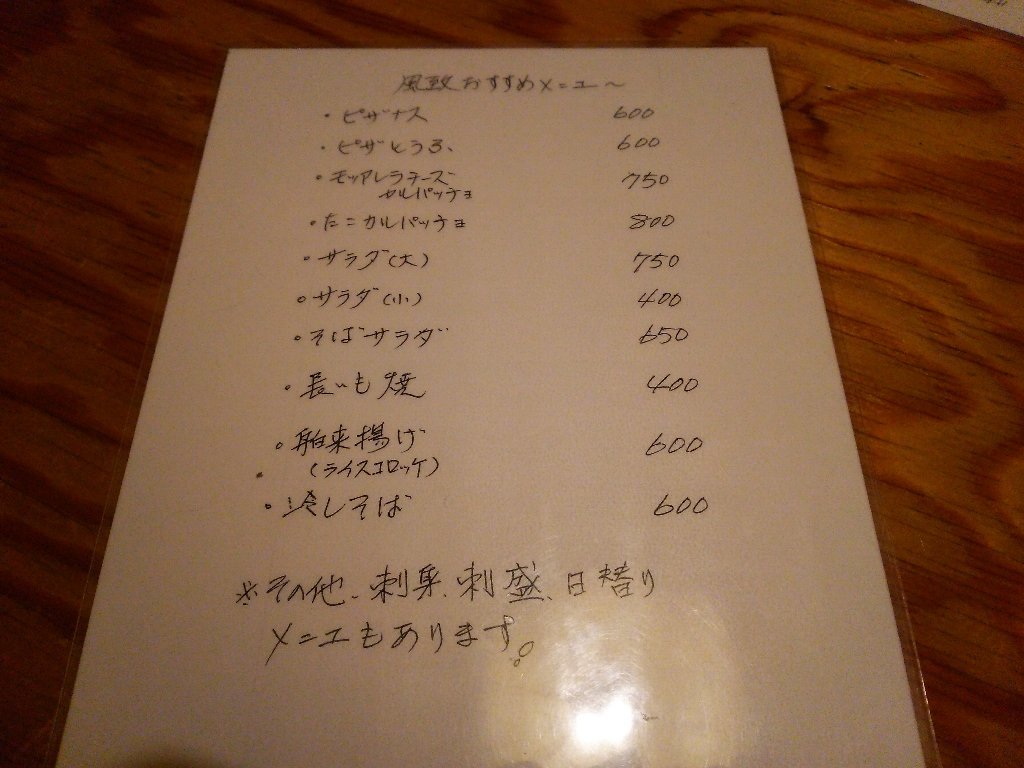 風致おすすめメニュー〜
・ピザナス 600
・ピザとうふ 600
・モッツァレラチーズ 750
カルパッチョ
・たこカルパッチョ 800
・サラダ(大) 750
・サラダ(小) 400
・そばサラダ 650
・長いも焼 400
・舶来揚げ 600
・(ライスコロッケ)
・冷しそば 600
※その他、刺身、刺盛、日替り
メニューもあります。